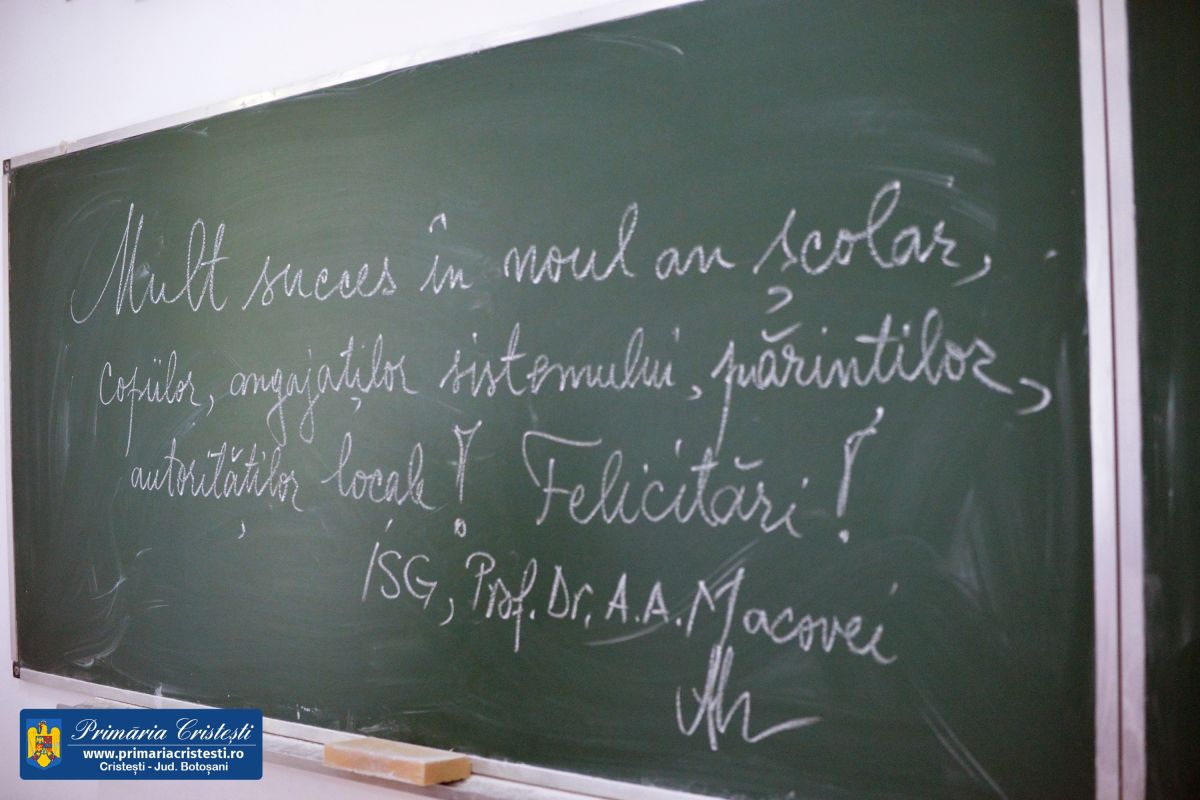 Mult succes în noul an școlar,
copiilor, angajaților sistemului, părinților,
autorităților locale! Felicitări!
ISG, Prof. Dr. A.A. Macovei
Primăria Cristești
www.primariacristesti.ro
Cristești - Jud. Botoșani